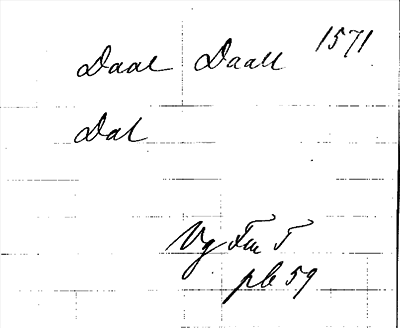 Daal Daall 1571
Dal
Vg Fru T
pb 59